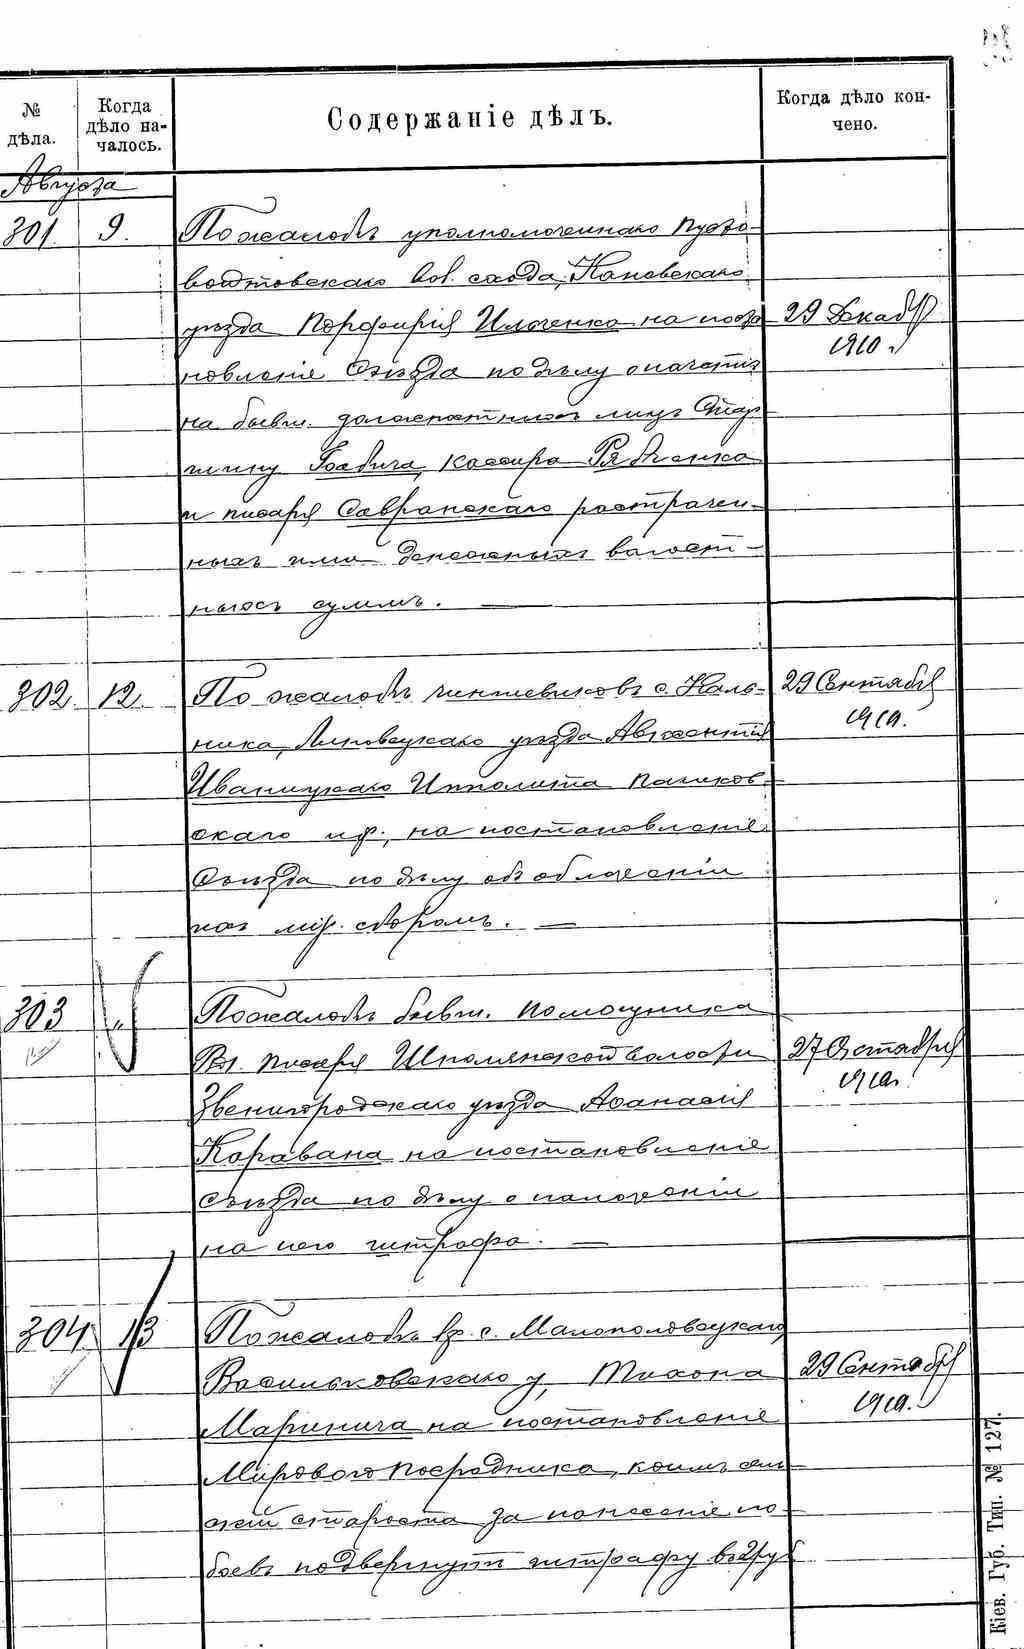 № дѣла.
Когда дѣло началось.
Содержаніе дѣлъ.
Когда дѣло кончено.
Августа
301. 9. По жалобѣ уполномоченнаго Пусто-
войтовскаго вол. схода, Каневскаго
уѣзда Порфирія Ильченка на поста
29 Декабр
новленіе Съѣзда по дѣлу о начетѣ
1910 г.
на бывш. должностныхъ лицъ Стар-
шину Бабича, кассира Рябченка
и писаря Савранскаго растрачен-
ныхъ ими денежныхъ волост-
ныхъ суммъ. —
302. 12. По жалобѣ чиншевиковъ с. Каль-
29 Сентября
ника, Липовецкаго уѣзда Авксентія
1910.
Иваницкаго Ипполита
скаго и др., на постановленіе
Съѣзда по дѣлу объ обложеніи
ихъ мір. сборомъ. —
303 „ По жалобѣ бывш. помощника
Вол. писаря Шполянской волости
27 Октября
Звенигородскаго уѣзда Афанасія
1910.
Каравана на постановленіе
Съѣзда по дѣлу о наложеніи
на него штрафа. —
304. 13 По жалобѣ кр. с. Малополовецкаго,
Васильковскаго у, Тихона
29 Сентября
Маринича на постановленіе
1910.
Мирового Посредника, коимъ сель
скій староста за нанесеніе по-
боевъ подвергнутъ штрафу въ 2 руб
Кіев. Губ. Тип. № 127.